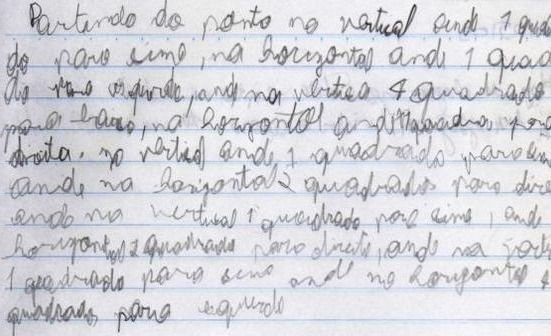 Partindo do ponto na vertical ande 1 quadra
do para cima, na horizontal ande 1 quad
do para esquerda, ande na vertica 4 quadrado
para baixo, na horizontal ande 4 quadra para
direita. na vertical ande 1 quadrado para cima
ande na horizontal 2 quadrados para dire
ande na vertical 1 quadrado para cima, ande
horizontal 2 quadrado para direita, ande na
1 quadrado para cima ande na horizontal 4
quadrados para esquerda